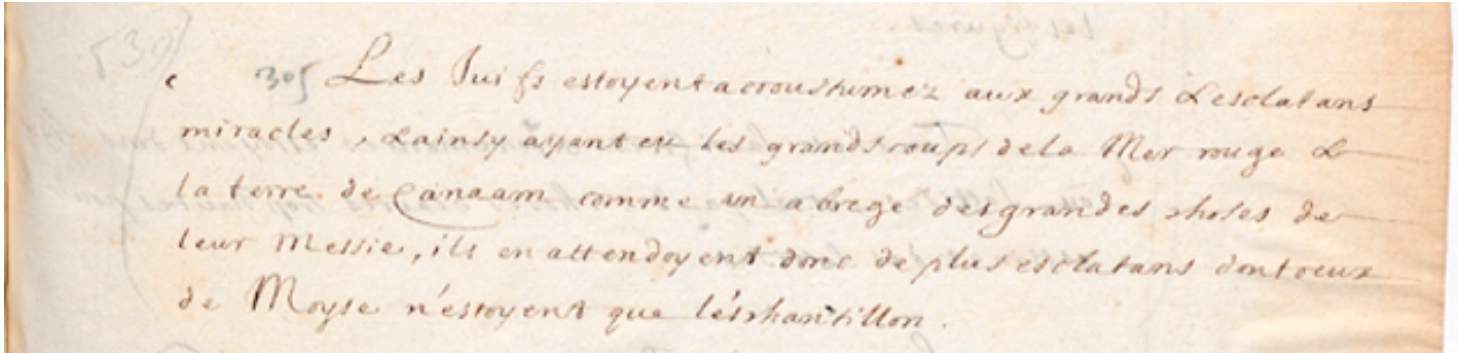 539
c 305 Les Juifs estoyent acoustumez aux grands & esclatans
miracles, & ainsy ayent eu les grands coups de la Mer rouge &
la terre de Canaam comme un abrege des grandes choses de
leur Messie, ils en attendoyent donc de plus esclatans dont ceux
de Moyse n'estoyent que l'eschantillon.